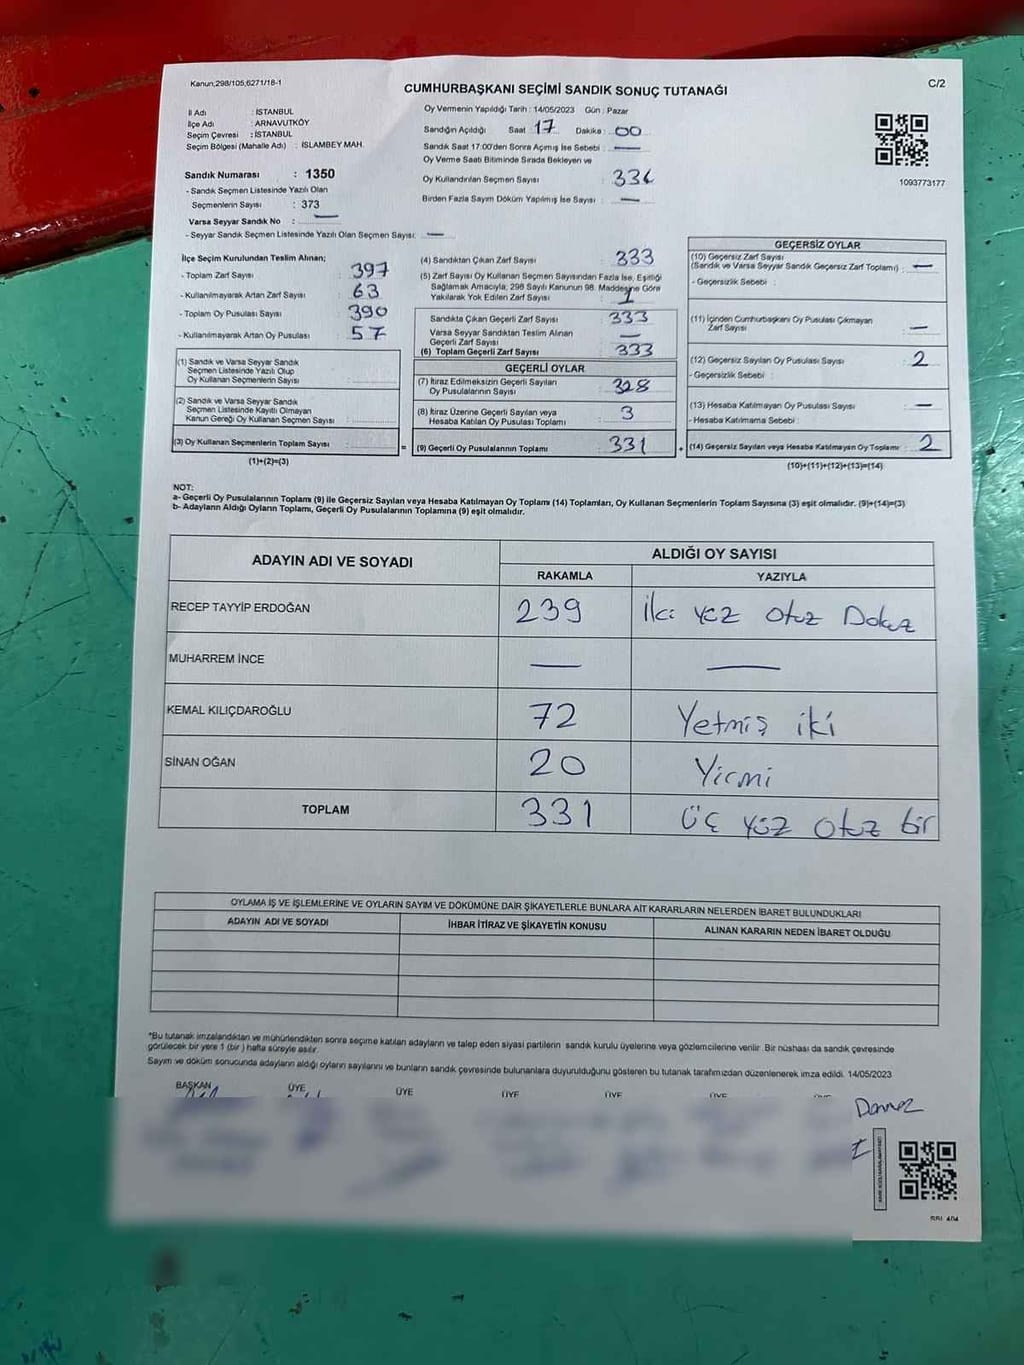 Kanun;298/105,6271/18-1
C/2
CUMHURBAŞKANI SEÇİMİ SANDIK SONUÇ TUTANAĞI
İl Adı : İSTANBUL
İlçe Adı : ARNAVUTKÖY
Seçim Çevresi : İSTANBUL
Seçim Bölgesi (Mahalle Adı) : İSLAMBEY MAH.
Sandık Numarası : 1350
- Sandık Seçmen Listesinde Yazılı Olan
Seçmenlerin Sayısı : 373
Varsa Seyyar Sandık No : —
- Seyyar Sandık Seçmen Listesinde Yazılı Olan Seçmen Sayısı: —
Oy Vermenin Yapıldığı Tarih : 14/05/2023 Gün : Pazar
Sandığın Açıldığı Saat 17 Dakika : 00
Sandık Saat 17:00'den Sonra Açımış İse Sebebi : —
Oy Verme Saati Bitiminde Sırada Bekleyen ve
Oy Kullandırılan Seçmen Sayısı : 334
Birden Fazla Sayım Döküm Yapılmış İse Sayısı : —
1093773177
İlçe Seçim Kurulundan Teslim Alınan;
- Toplam Zarf Sayısı : 397
- Kullanılmayarak Artan Zarf Sayısı : 63
- Toplam Oy Pusulası Sayısı : 390
- Kullanılmayarak Artan Oy Pusulası : 57
(1) Sandık ve Varsa Seyyar Sandık
Seçmen Listesinde Yazılı Olup
Oy Kullanan Seçmenlerin Sayısı :
(2) Sandık ve Varsa Seyyar Sandık
Seçmen Listesinde Kayıtlı Olmayan
Kanun Gereği Oy Kullanan Seçmen Sayısı :
(3) Oy Kullanan Seçmenlerin Toplam Sayısı :
(1)+(2)=(3)
(4) Sandıktan Çıkan Zarf Sayısı : 333
(5) Zarf Sayısı Oy Kullanan Seçmen Sayısından Fazla İse, Eşitliği
Sağlamak Amacıyla; 298 Sayılı Kanunun 98. Maddesine Göre
Yakılarak Yok Edilen Zarf Sayısı : 1
Sandıkta Çıkan Geçerli Zarf Sayısı : 333
Varsa Seyyar Sandıktan Teslim Alınan
Geçerli Zarf Sayısı : —
(6) Toplam Geçerli Zarf Sayısı : 333
GEÇERLİ OYLAR
(7) İtiraz Edilmeksizin Geçerli Sayılan
Oy Pusulalarının Sayısı : 328
(8) İtiraz Üzerine Geçerli Sayılan veya
Hesaba Katılan Oy Pusulası Toplamı : 3
= (9) Geçerli Oy Pusulalarının Toplamı : 331
GEÇERSİZ OYLAR
(10) Geçersiz Zarf Sayısı
(Sandık ve Varsa Seyyar Sandık Geçersiz Zarf Toplamı) : —
- Geçersizlik Sebebi :
(11) İçinden Cumhurbaşkanı Oy Pusulası Çıkmayan
Zarf Sayısı : —
(12) Geçersiz Sayılan Oy Pusulası Sayısı : 2
- Geçersizlik Sebebi :
(13) Hesaba Katılmayan Oy Pusulası Sayısı : —
- Hesaba Katılmama Sebebi :
+ (14) Geçersiz Sayılan veya Hesaba Katılmayan Oy Toplamı : 2
(10)+(11)+(12)+(13)=(14)
NOT:
a- Geçerli Oy Pusulalarının Toplamı (9) ile Geçersiz Sayılan veya Hesaba Katılmayan Oy Toplamı (14) Toplamları, Oy Kullanan Seçmenlerin Toplam Sayısına (3) eşit olmalıdır. (9)+(14)=(3)
b- Adayların Aldığı Oyların Toplamı, Geçerli Oy Pusulalarının Toplamına (9) eşit olmalıdır.
ADAYIN ADI VE SOYADI
ALDIĞI OY SAYISI
RAKAMLA YAZIYLA
RECEP TAYYİP ERDOĞAN 239 İki yüz otuz Dokuz
MUHARREM İNCE — —
KEMAL KILIÇDAROĞLU 72 Yetmiş iki
SİNAN OĞAN 20 Yirmi
TOPLAM 331 Üç yüz otuz bir
OYLAMA İŞ VE İŞLEMLERİNE VE OYLARIN SAYIM VE DÖKÜMÜNE DAİR ŞİKAYETLERLE BUNLARA AİT KARARLARIN NELERDEN İBARET BULUNDUKLARI
ADAYIN ADI VE SOYADI İHBAR İTİRAZ VE ŞİKAYETİN KONUSU ALINAN KARARIN NEDEN İBARET OLDUĞU
*Bu tutanak imzalandıktan ve mühürlendikten sonra seçime katılan adayların ve talep eden siyasi partilerin sandık kurulu üyelerine veya gözlemcilerine verilir. Bir nüshası da sandık çevresinde
görülecek bir yere 1 (bir) hafta süreyle asılır.
Sayım ve döküm sonucunda adayların aldığı oyların sayılarını ve bunların sandık çevresinde bulunanlara duyurulduğunu gösteren bu tutanak tarafımızdan düzenlenerek imza edildi. 14/05/2023
BAŞKAN ÜYE ÜYE ÜYE ÜYE ÜYE